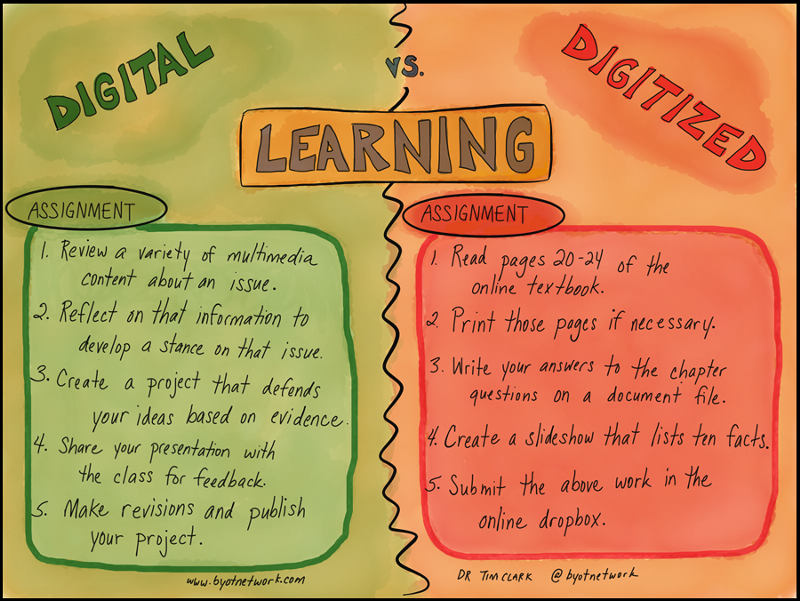 DIGITAL
VS.
DIGITIZED
LEARNING
ASSIGNMENT
1. Review a variety of multimedia
content about an issue.
2. Reflect on that information to
develop a stance on that issue.
3. Create a project that defends
your ideas based on evidence.
4. Share your presentation with
the class for feedback.
5. Make revisions and publish
your project.
www.byotnetwork.com
ASSIGNMENT
1. Read pages 20-24 of the
online textbook.
2. Print those pages if necessary.
3. Write your answers to the chapter
questions on a document file.
4. Create a slideshow that lists ten facts.
5. Submit the above work in the
online dropbox.
DR TIM CLARK @byotnetwork